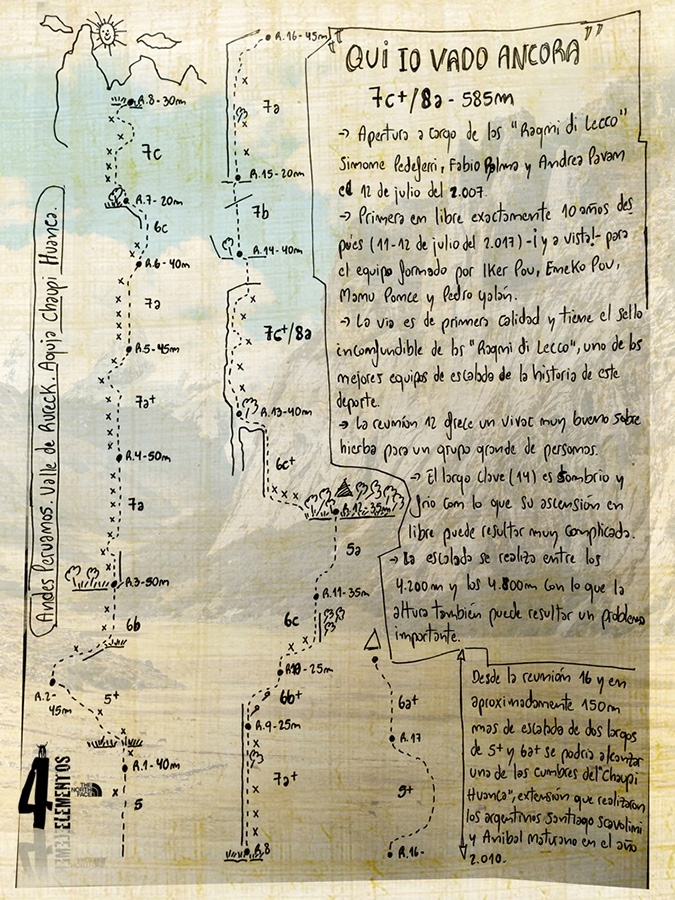 "QUI IO VADO ANCORA"
7c+/8a - 585m
→ Apertura a cargo de los "Ragni di Lecco"
Simone Pedeferri, Fabio Palma y Andrea Pavan
el 12 de julio del 2.007.
→ Primera en libre exactamente 10 años des
pués (11-12 de julio del 2.017) -¡y a vista!- para
el equipo formado por Iker Pou, Eneko Pou,
Manu Ponce y Pedro Galán.
→ La via es de primera calidad y tiene el sello
inconfundible de los "Ragni di Lecco", uno de los
mejores equipos de escalada de la historia de este
deporte.
→ La reunión 12 ofrece un vivac muy bueno sobre
hierba para un grupo grande de personas.
→ El largo clave (14) es sombrio y
frio con lo que su ascensión en
libre puede resultar muy complicada.
→ La escalada se realiza entre los
4.200m y los 4.800m con lo que la
altura también puede resultar un problema
importante.
Desde la reunión 16 y en
aproximadamente 150m
mas de escalada de dos largos
de 5+ y 6a+ se podria alcanzar
una de las cumbres del "Chaupi
Huanca", extensión que realizaron
los argentinos Santiago Scavolini
y Anibal Maturano en el año
2.010.
Andes Peruanos. Valle de Rureck. Aguja Chaupi Huanca.
R.8-30m
7c
R.7-20m
6c
R.6-40m
7a
R.5-45m
7a+
R.4-50m
7a
R.3-50m
6b
R.2-
45m
5+
R.1-40m
5
R.16-45m
7a
R.15-20m
7b
R.14-40m
7c+/8a
R.13-40m
6c+
R.12-35m
5a
R.11-35m
6c
R.10-25m
6b+
R.9-25m
7a+
R.8
6a+
R.17
5+
R.16-
4
ELEMENTOS
THE
NORTH
FACE